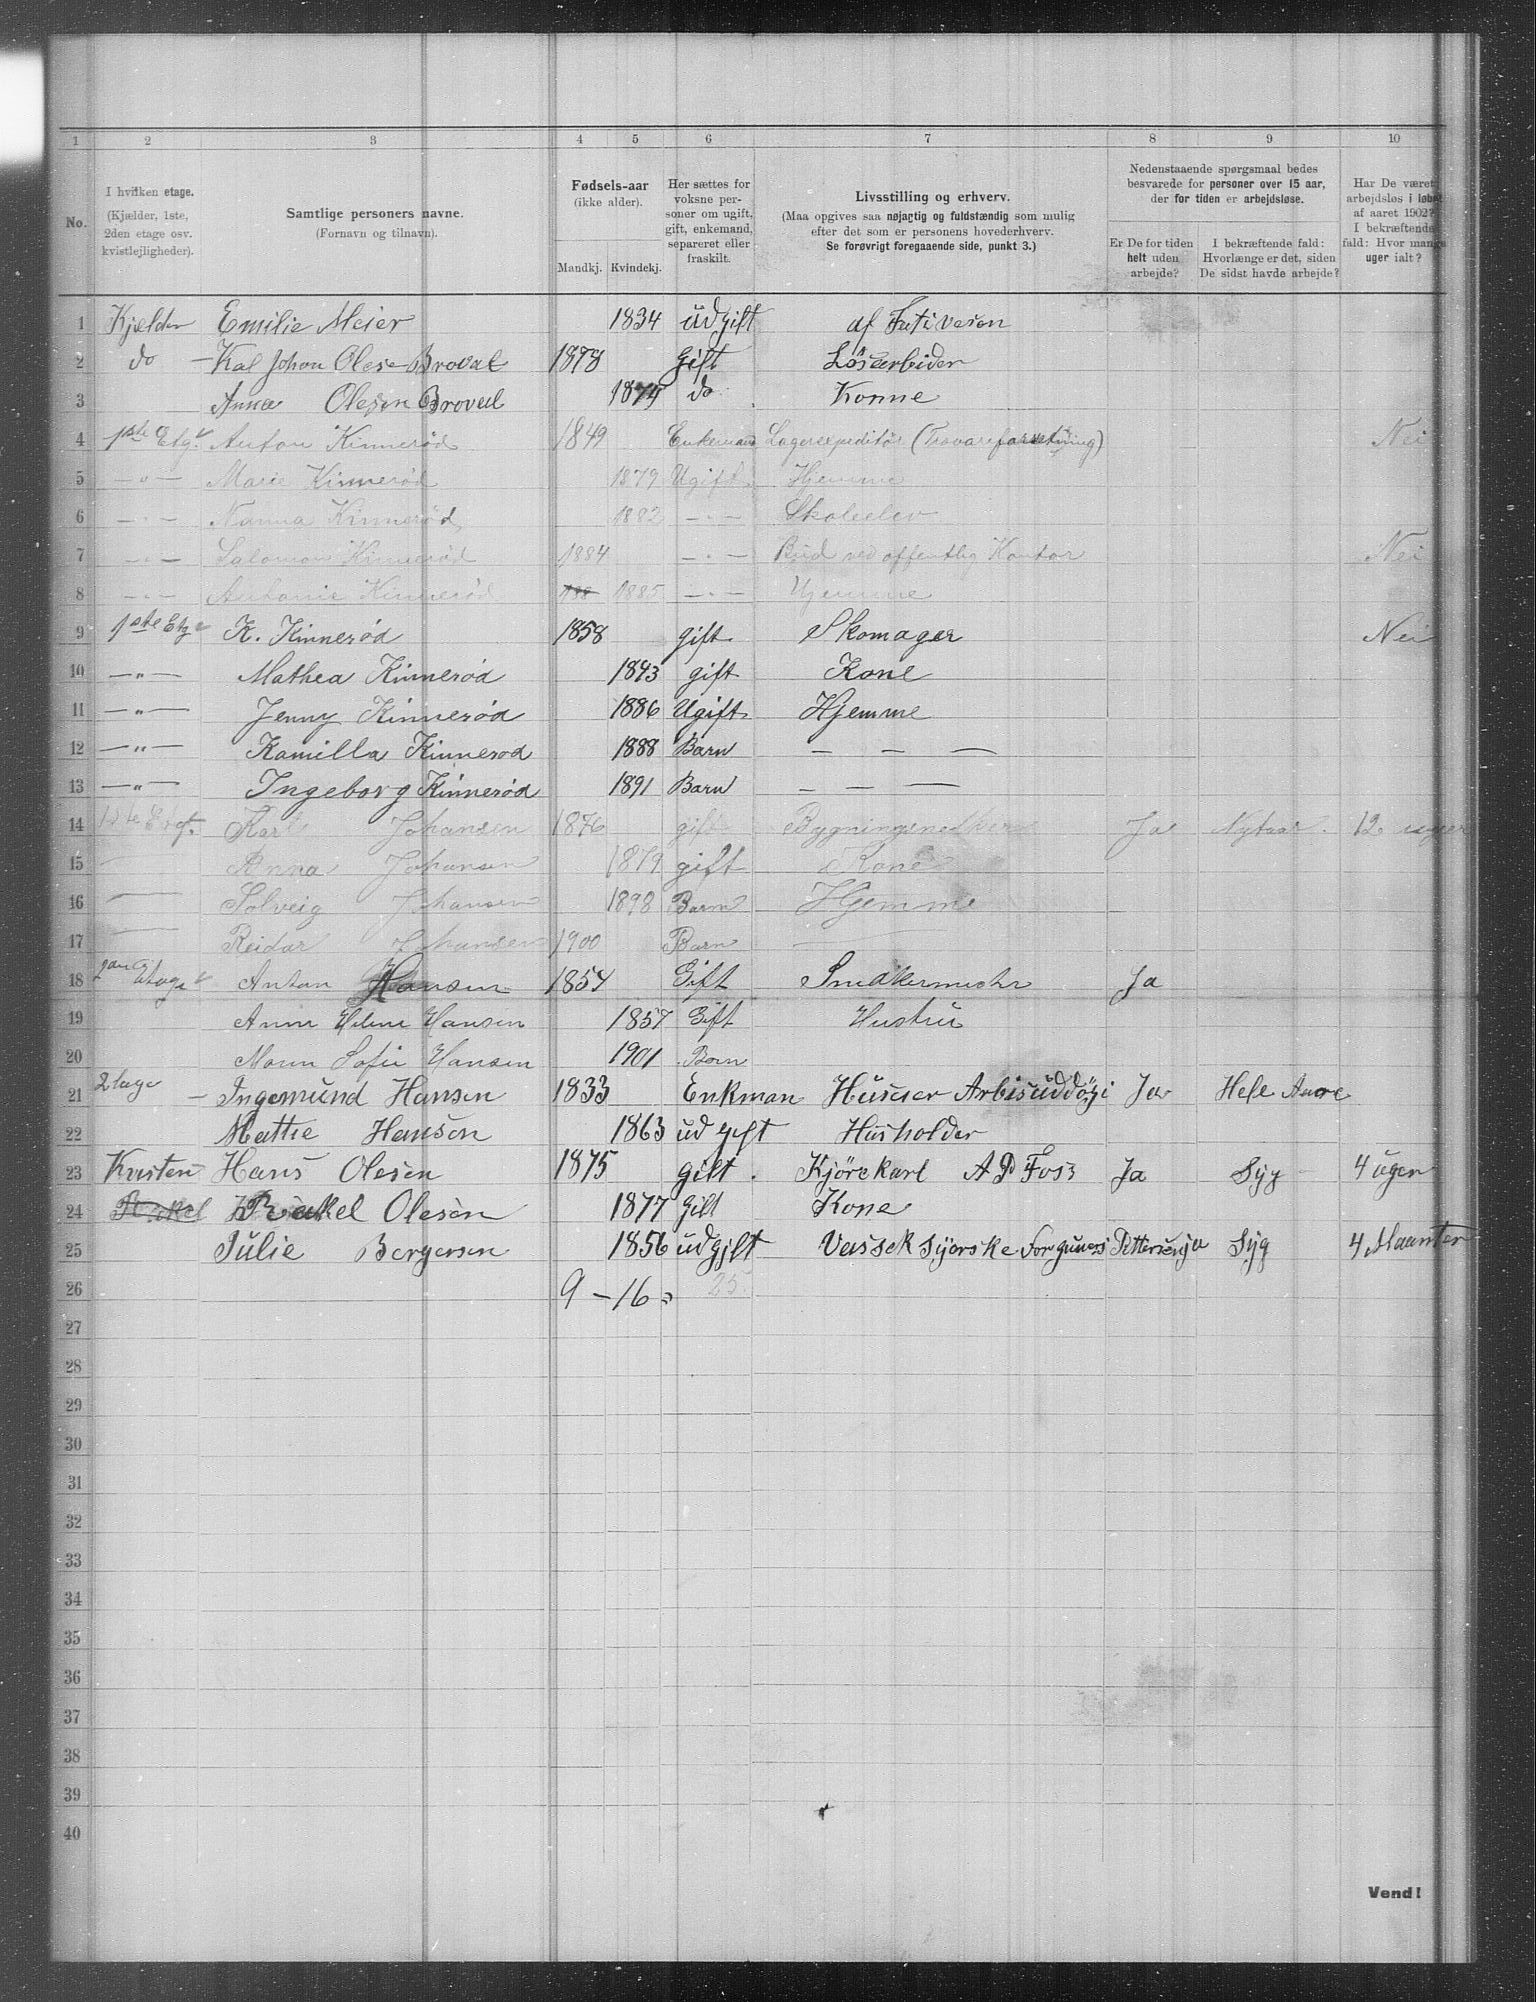 1 2 3 4 5 6 7 8 9 10
No.
I hvilken etage.
(Kjælder, 1ste,
2den etage osv.
kvistlejligheder).
Samtlige personers navne.
(Fornavn og tilnavn).
Fødsels-aar
(ikke alder).
Mandkj. Kvindekj.
Her sættes for
voksne per-
soner om ugift,
gift, enkemand,
separeret eller
fraskilt.
Livsstilling og erhverv.
(Maa opgives saa nøjagtig og fuldstændig som mulig
efter det som er personens hovederhverv.
Se forøvrigt foregaaende side, punkt 3.)
Nedenstaaende spørgsmaal bedes
besvarede for personer over 15 aar,
der for tiden er arbejdsløse.
Er De for tiden
helt uden
arbejde?
I bekræftende fald:
Hvorlænge er det, siden
De sidst havde arbejde?
Har De været
arbejdsløs i løbet
af aaret 1902?
I bekræftende
fald: Hvor mange
uger ialt?
1 Kjelder Emilie Meier 1834 udgift af
2 do Kal Johan Olese Broval 1878 Gift Løsarbider
3 Anna Olesen Broval 1874 do Konne
4 1ste Etg. Anton Kinnerød 1849 Enkemand Lagerexpeditør (Travareforretning) Nei
5 — " — Marie Kinnerød 1879 Ugift Hjemme
6 — " — Nanna Kinnerød 1882 — " — Skoleelev
7 — " — Salomon Kinnerød 1884 — " — Bud ved offentlig Kontor Nei
8 — " — Antonie Kinnerød 188 1885 — " — Hjemme
9 1ste Etg K. Kinnerød 1858 gift Skomager Nei
10 — " — Mathea Kinnerød 1843 gift Kone
11 — " — Jenny Kinnerød 1886 Ugift Hjemme
12 — " — Kamilla Kinnerød 1888 Barn — — —
13 — " — Ingeborg Kinnerød 1891 Barn — — —
14 1ste Karl Johansen 1876 gift Bygningsnedkker Ja Nytaar 12 uger
15 Anna Johansen 1879 gift Kone
16 Solveig Johansen 1898 Barn Hjemme
17 Reidar Johansen 1900 Barn
18 2den Etage Anton Hansen 1854 Gift Ja
19 Anne Helene Hansen 1857 Gift Hustru
20 Sofie Hansen 1901 Born
21 2 tage Ingemund Hansen 1833 Enkman Husuer Arbisuddøgi Ja Hele Aare
22 Mattie Hansen 1863 ud gift Husholder
23 Kvisten Hans Olesen 1875 gift. Kjörekarl A P Foss Ja Syg 4 ugen
24 Rakel Rakel Olesen 1877 Gift Kone
25 Julie Bergersen 1856 udgift Vassek syerske For gunessi Pettersen ja Syg 4 Maanter
26 9 – 16 = 25
27
28
29
30
31
32
33
34
35
36
37
38
39
40
Vend!